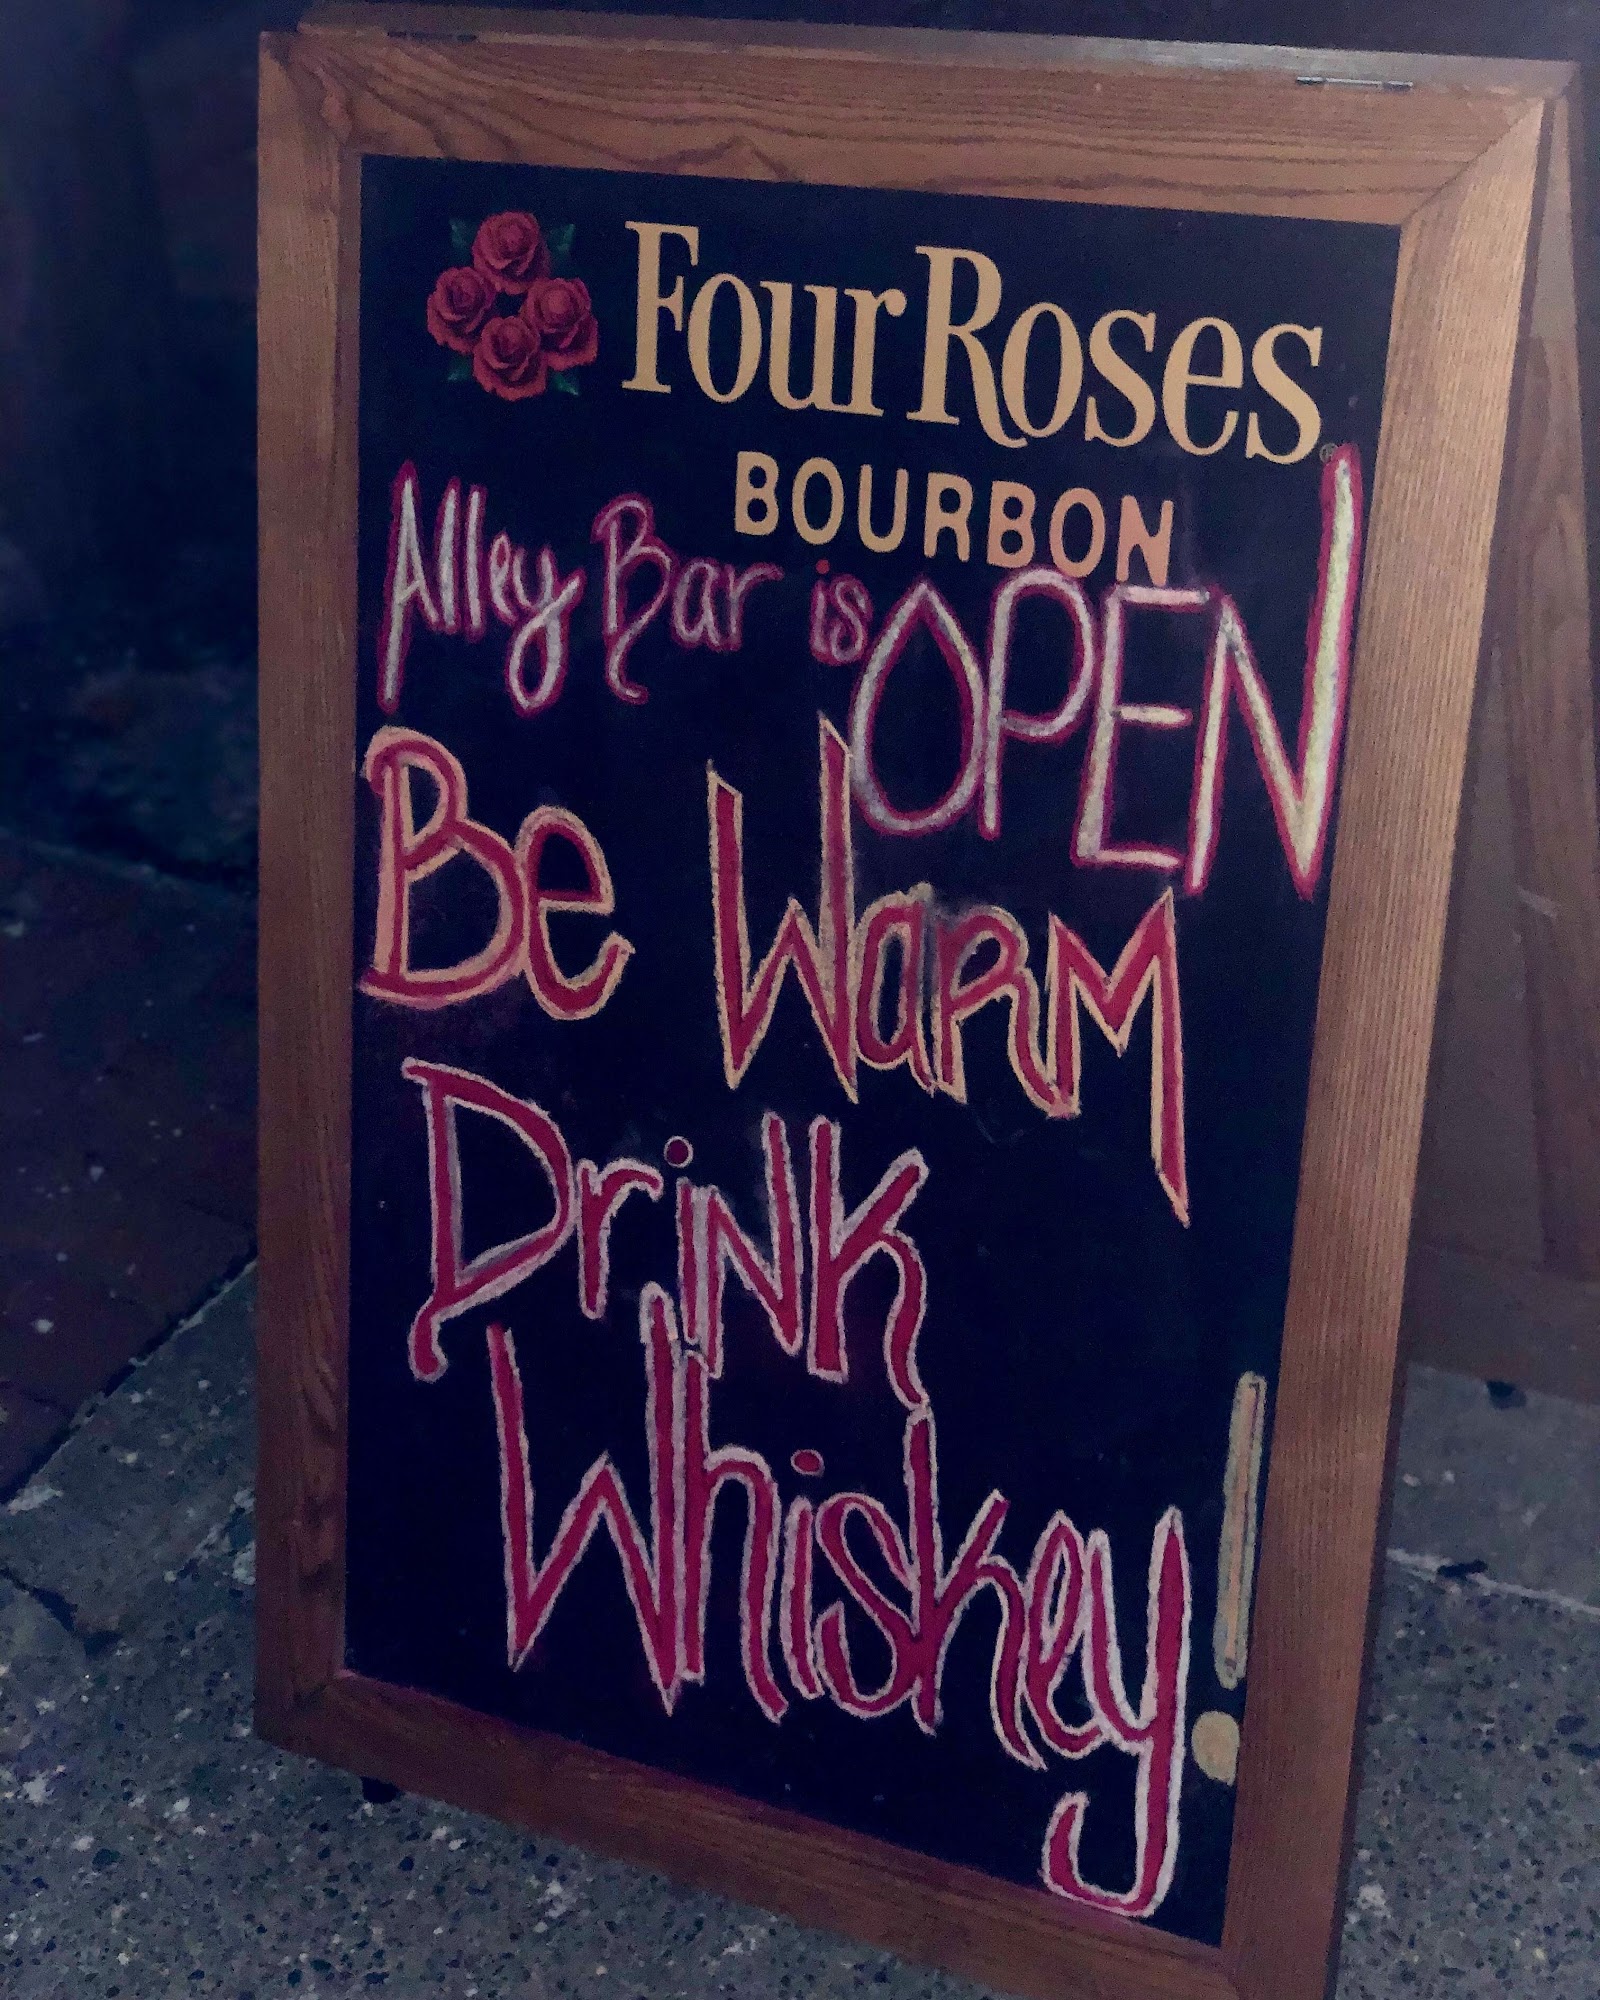 Four Roses®
BOURBON
Alley Bar is OPEN
Be Warm
Drink
Whiskey!